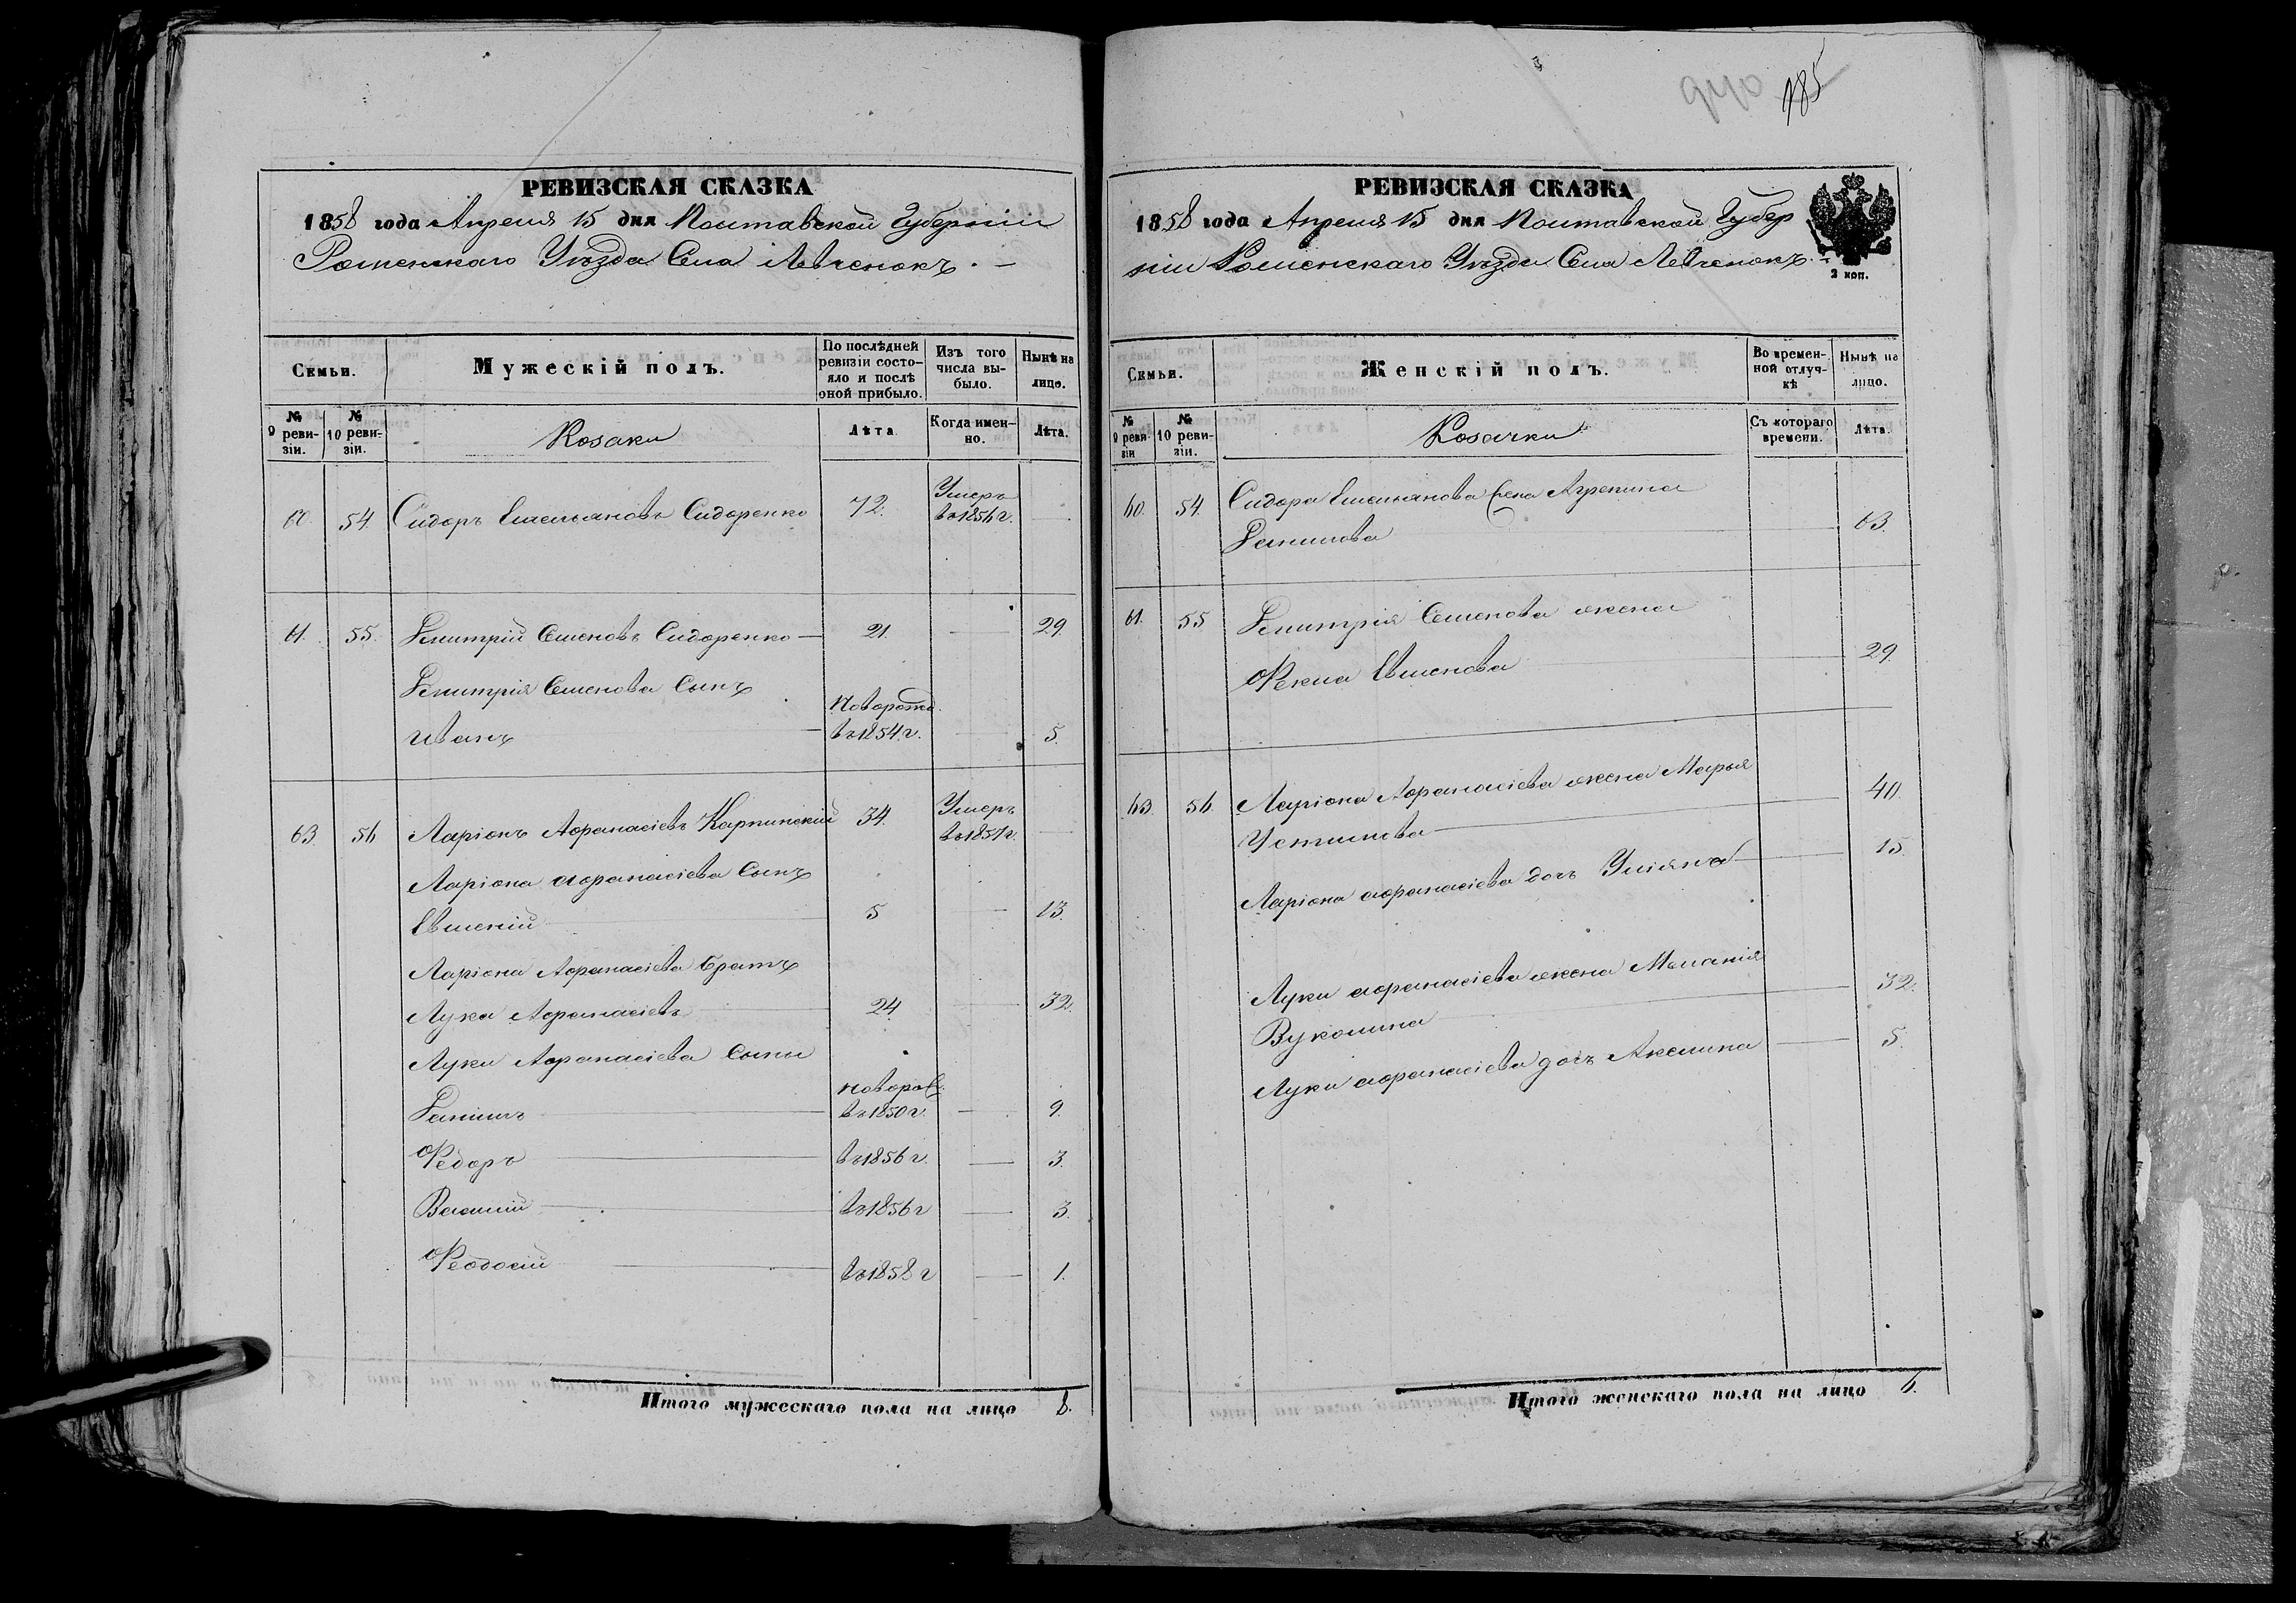 РЕВИЗСКАЯ СКАЗКА
1858 года Апреля 15 дня Полтавской Губерніи
Роменскаго Уѣзда Села Левченокъ.
Семьи.
Мужескій полъ.
По послѣдней ревизіи состояло и послѣ оной прибыло.
Изъ того числа выбыло.
Нынѣ на лицо.
№ 9 ревизіи.
№ 10 ревизіи.
Козаки
Лѣта.
Когда именно.
Лѣта.
60. 54. Сидоръ Емельяновъ Сидоренко 72. Умеръ въ 1856 г.
61. 55. Дмитрій Семеновъ Сидоренко 21. 29.
Дмитрія Семенова Сынъ
Иванъ Новорожд. въ 1854 г. 5.
63. 56 Ларіонъ Афанасіевъ Карпинский 34. Умеръ въ 1857 г.
Ларіона Афанасіева Сынъ
Евменій 5 13.
Ларіона Афанасіева братъ
Лука Афанасіевъ 24. 32.
Луки Афанасіева Сыны
Данилъ новорож. въ 1850 г. 9.
Федоръ въ 1856 г. 3.
Василий въ 1856 г 3.
Феодосій въ 1858 г 1.
Итого мужескаго пола на лицо 8.
940 185
РЕВИЗСКАЯ СКАЗКА
1858 года Апреля 15 дня Полтавской Губер
ніи Роменскаго Уѣзда Села Левченокъ.
2 коп.
Семьи.
Женскій полъ.
Во временной отлучкѣ
Нынѣ на лицо.
№ 9 ревизіи
№ 10 ревизіи.
Козачки
Съ котораго времени.
Лѣта.
60. 54. Сидора Емельянова жена Агрепина
Данилова 63.
61. 55 Дмитрія Семенова жена
Фекла Евменова 29.
63. 56. Ларіона Афанасіева жена Марья 40.
Устинова
Ларіона Афанасіева дочь Уліяна 15.
Луки Афанасіева жена Меланія 32.
Вуколина
Луки Афанасіева дочь Акелина 5.
Итого женскаго пола на лицо 6.